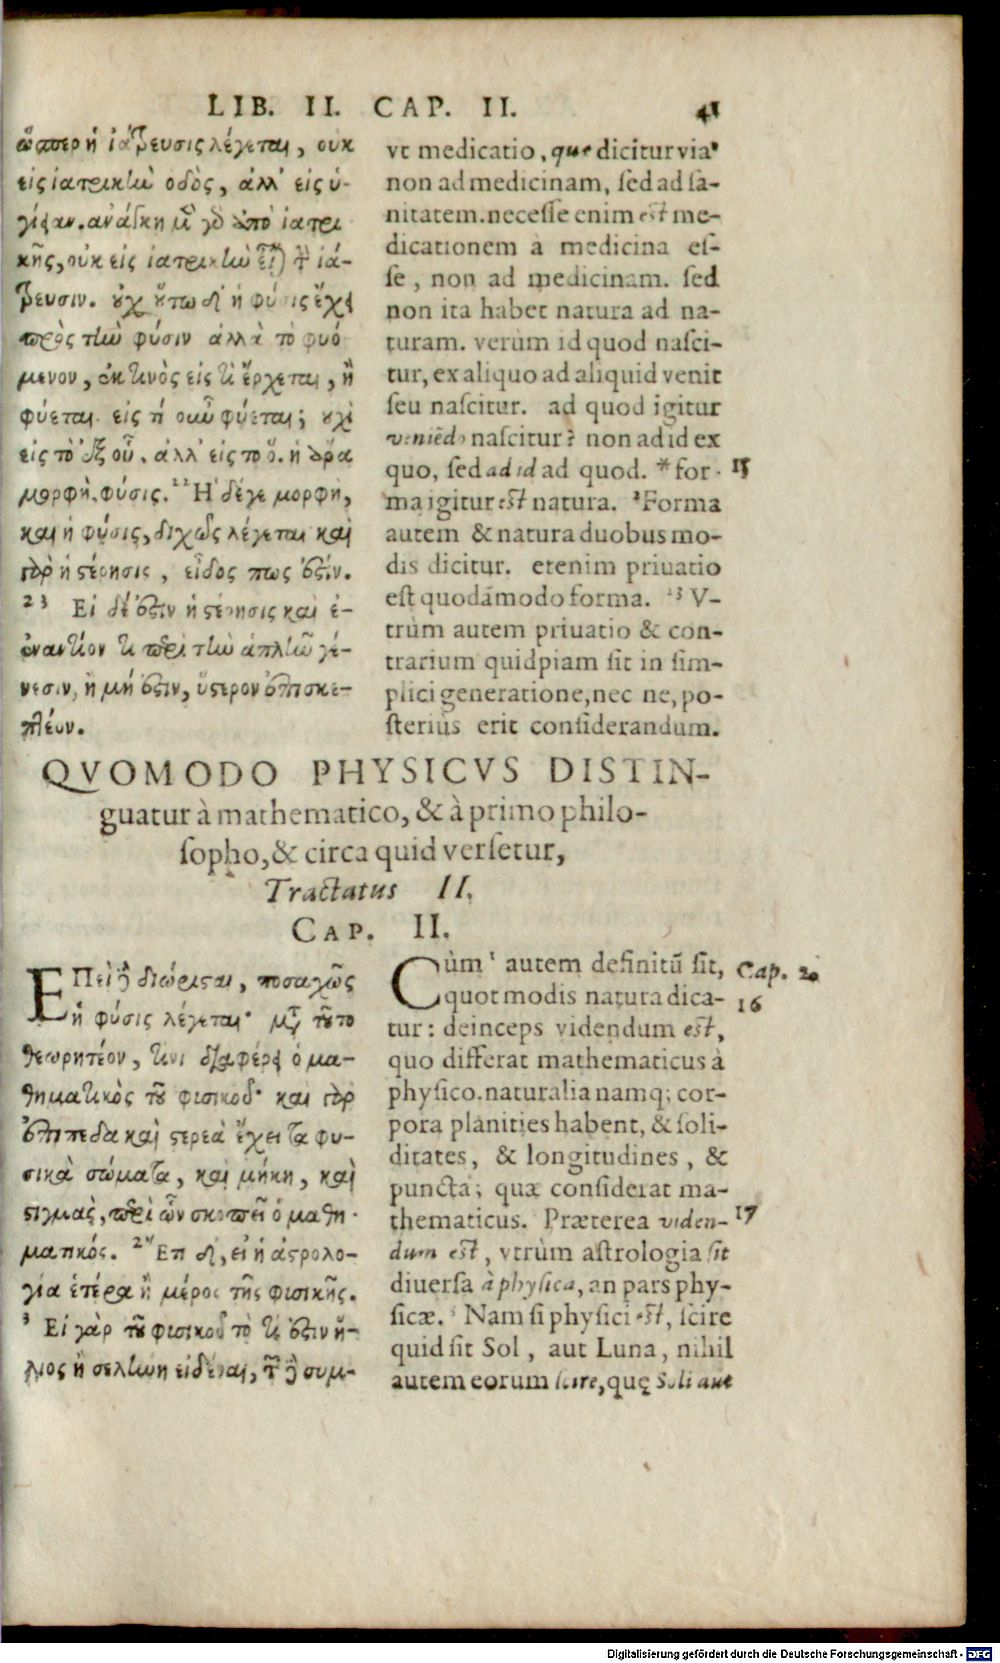 LIB. II. CAP. II. 41
ὥσπερ ἡ ἰάτρευσις λέγεται, οὐκ
εἰς ἰατρικὴν ὁδὸς, ἀλλ' εἰς ὑ-
γίειαν. ἀνάγκη μὲν γὸ ἀπὸ ἰατρι
κῆς, οὐκ εἰς ἰατρικὴν εἶναι τὴν ἰά-
τρευσιν. οὐχ οὕτω δ' ἡ φύσις ἔχει
πρὸς τὴν φύσιν ἀλλὰ τὸ φυό
μενον, ἐκ τινὸς εἰς τὶ ἔρχεται, ἢ
φύεται. εἰς τί οὖν φύεται; οὐχὶ
εἰς τὸ ἐξ οὗ. ἀλλ' εἰς τὸ ὅ. ἡ ἄρα
μορφὴ, φύσις. 22 Ἡ δέγε μορφὴ,
καὶ ἡ φύσις, διχῶς λέγεται καὶ
γὰρ ἡ στέρησις, εἶδος πως ἐστίν.
23 Εἰ δέ ἐστιν ἡ στέρησις καὶ ἐ-
ἐναντίον τι περὶ τὴν ἁπλῆν γέ-
νεσιν, ἢ μή ἐστιν, ὕστερον ἐπισκε-
πτέον.
vt medicatio, que dicitur via
non ad medicinam, sed ad sa-
nitatem. necesse enim est me-
dicationem a medicina es-
se, non ad medicinam. sed
non ita habet natura ad na-
turam. verùm id quod nasci-
tur, ex aliquo ad aliquid venit
seu nascitur. ad quod igitur
veniẽdo nascitur? non ad id ex
quo, sed ad id ad quod. * for- 15
ma igitur est natura. Forma
autem & natura duobus mo-
dis dicitur. etenim priuatio
est quodãmodo forma. 23 V-
trùm autem priuatio & con-
trarium quidpiam sit in sim-
plici generatione, nec ne, po-
steriùs erit considerandum.
QVOMODO PHYSICVS DISTIN-
guatur à mathematico, & à primo philo-
sopho, & circa quid versetur,
Tractatus II.
CAP. II.
ΕΠεὶ δὲ διώρισται, ποσαχῶς
ἡ φύσις λέγεται· μετὰ τοῦτο
θεωρητέον, τίνι διαφέρει ὁ μα-
θηματικὸς τοῦ φισικοῦ· καὶ γὰρ
ἐπίπεδα καὶ στερεὰ ἔχει τα φυ-
σικὰ σώματα, καὶ μήκη, καὶ
στιγμὰς, περὶ ὧν σκοπεῖ ὁ μαθη-
ματικός. 2 Ἔτι δ', εἰ ἡ ἀστρολο-
γία ἑτέρα ἢ μέρος τῆς φισικῆς.
3 Εἰ γὰρ τοῦ φισικοῦ τὸ τί ἐστιν ἥ-
λιος ἢ σελήνη εἰδέναι, τῶν δὲ συμ-
Cùm 1 autem definitũ sit, Cap. 2.
quot modis natura dica- 16
tur: deinceps videndum est,
quo differat mathematicus à
physico. naturalia namq; cor-
pora planities habent, & soli-
ditates, & longitudines, &
puncta; quæ considerat ma-
thematicus. Præterea viden- 17
dum est, vtrùm astrologia sit
diuersa à physica, an pars phy-
sicæ. Nam si physici est, scire
quid sit Sol, aut Luna, nihil
autem eorum scire, quę Soli aut
Digitalisierung gefördert durch die Deutsche Forschungsgemeinschaft - DFG